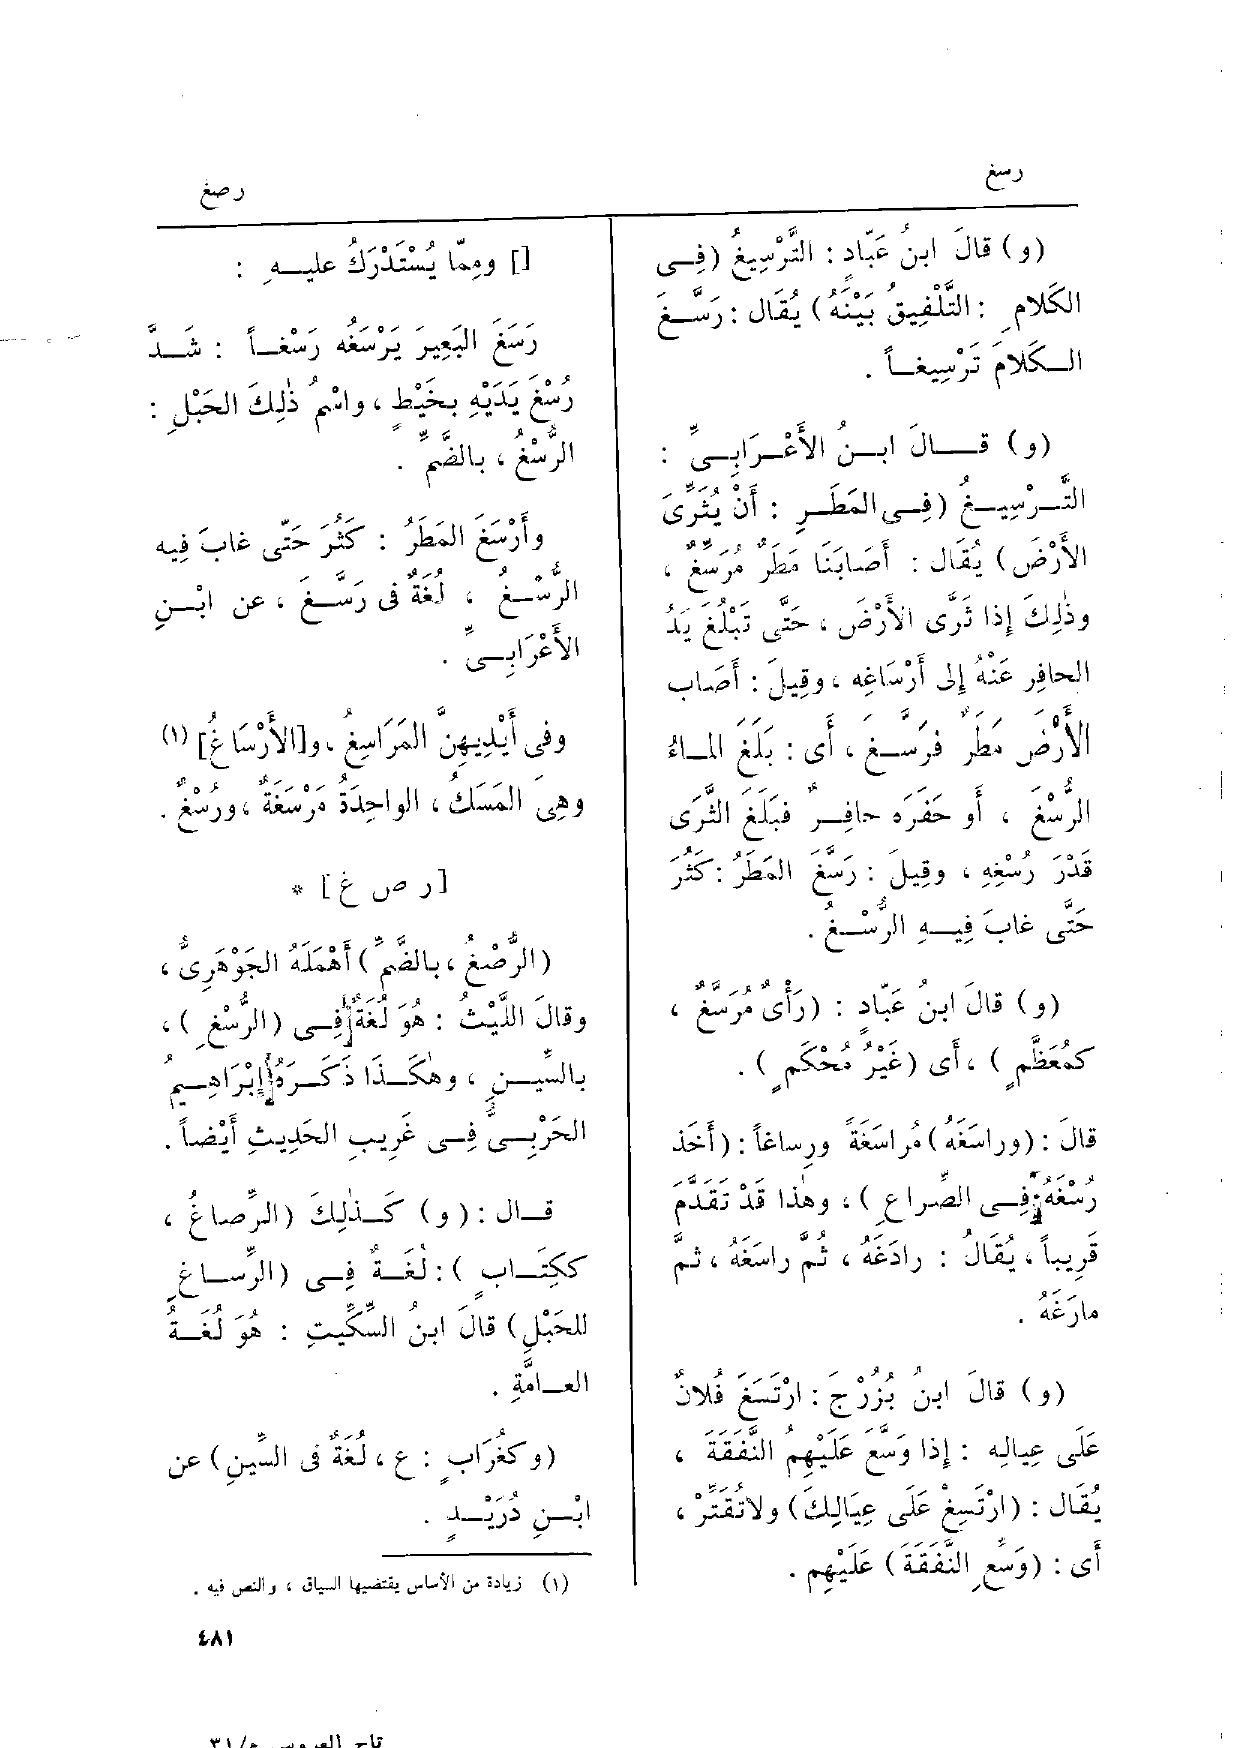 رسغ
رصغ
(و) قالَ ابنُ عَبّادٍ : التَّرْسِيغُ (فِى
الكَلامِ : التَّلْفِيقُ بَيْنَهُ) يُقَال : رَسَّغَ
الكَلامَ تَرْسِيغاً .
(و) قالَ ابنُ الأَعْرَابِىِّ :
التَّرْسِيغُ (فِى المَطَرِ : أَنْ يُثَرِّىَ
الأَرْضَ) يُقَال : أَصَابَنَا مَطَرٌ مُرَسِّغٌ ،
وذٰلِكَ إِذا ثَرَّى الأَرْضَ ، حَتَّى تَبْلُغَ يَدُ
الحافِرِ عَنْهُ إِلى أَرْسَاغِه ، وقِيلَ : أَصَاب
الأَرْضَ مَطَرٌ فَرَسَّغَ ، أَى : بَلَغَ المَاءُ
الرُّسْغَ ، أَو حَفَرَه حافِرٌ فبَلَغَ الثَّرَى
قَدْرَ رُسْغِهِ ، وقِيلَ : رَسَّغَ المَطَرُ : كَثُرَ
حَتَّى غابَ فِيهِ الرُّسْغُ .
(و) قالَ ابنُ عَبّادٍ : (رَأْىٌ مُرَسَّغٌ ،
كمُعَظَّمٍ ) ، أَى (غَيْرُ مُحْكَمٍ ) .
قالَ : (وراسَغَهُ) مُراسَغَةً ورِساغاً : (أَخَذَ
رُسْغَهُ فِى الصِّراعِ ) ، وهٰذا قَدْ تَقَدَّمَ
قَرِيباً ، يُقَالُ : رادَغَهُ ، ثُم راسَغَهُ ، ثم
مارَغَهُ .
(و) قالَ ابنُ بُزُرْجَ : ارْتَسَغَ فُلانٌ
عَلَى عِيالِه : إِذا وَسَّعَ عَلَيْهِمُ النَّفَقَةَ ،
يُقَال : (ارْتَسِغْ عَلَى عِيَالِكَ) ولاتُقَتِّرْ ،
أَى : (وَسِّعِ النَّفَقَةَ) عَلَيْهِم .
[] ومِمّا يُسْتَدْرَكُ عليهِ :
رَسَغَ البَعِيرَ يَرْسَغُه رَسْغاً : شَدَّ
رُسْغَ يَدَيْهِ بخَيْطٍ ، واسْمُ ذٰلِكَ الحَبْلِ :
الرُّسْغُ ، بالضَّمِّ .
وأَرْسَغَ المَطَرُ : كَثُرَ حَتّى غابَ فِيه
الرُّسْغُ ، لُغَةٌ فى رَسَّغَ ، عن ابْنِ
الأَعْرَابِىِّ .
وفى أَيْدِيهِنَّ المَرَاسِغُ ، و[الأَرْسَاغُ] (١)
وهِىَ المَسَكُ ، الواحِدَةُ مَرْسَغَةٌ ، ورُسْغٌ .
[ر ص غ] *
(الرُّصْغُ ، بالضَّمِّ) أَهْمَلَهُ الجَوْهَرِىُّ ،
وقالَ اللَّيْثُ : هُوَ لُغَةٌ فِى (الرُّسْغِ ) ،
بالسِّينِ ، وهكَذا ذَكَرَهُ إِبْرَاهِيمُ
الحَرْبِىُّ فِى غَرِيبِ الحَدِيثِ أَيْضاً .
قال : (و) كَذٰلِكَ (الرِّصاغُ ،
ككِتَابٍ ) : لُغَةٌ فِى (الرِّسَاغِ
للحَبْلِ) قالَ ابنُ السِّكِّيتِ : هُوَ لُغَةُ
العامَّةِ .
(وكغُرَابٍ : ع ، لُغَةٌ فى السِّينِ) عن
ابْنِ دُرَيْدٍ .
(١) زيادة من الأساس يقتضيها السياق ، والنص فيه .
٤٨١
تاج العروس م/٣١